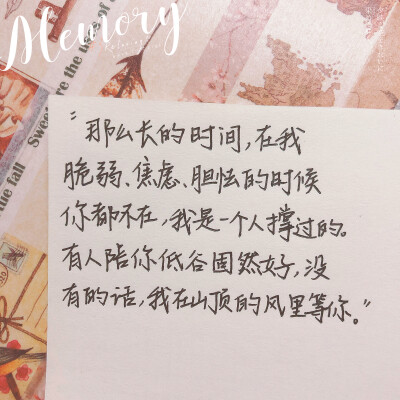 Memory
Sweet are the
true fall
“那么长的时间,在我
脆弱、焦虑、胆怯的时候
你都不在,我是一个人撑过的。
有人陪你低谷固然好,没
有的话,我在山顶的风里等你。”